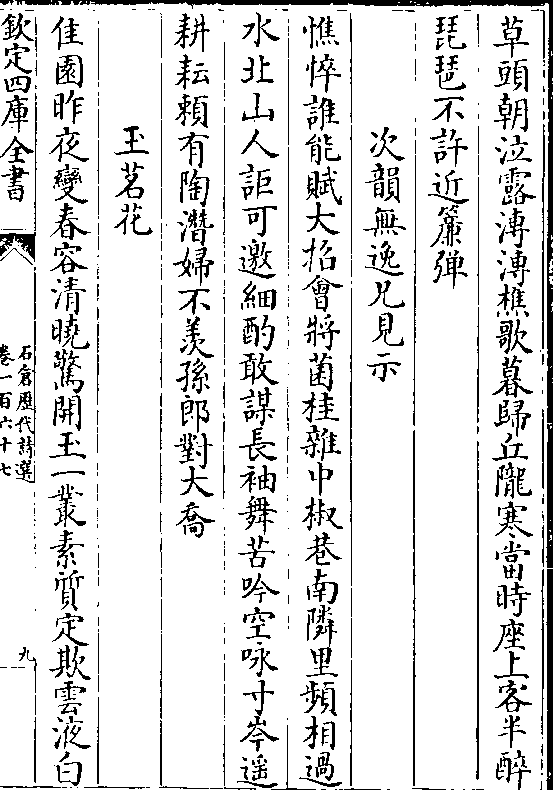 草頭朝泣露漙漙樵歌暮歸丘隴寒當時座上客半醉
琵琶不許近簾彈
次韻無逸兄見示
憔悴誰能賦大招會將菌桂雜申椒巷南隣里頻相過
水北山人詎可邀細酌敢謀長袖舞苦吟空咏寸岑遥
耕耘頼有陶潛婦不羡孫郎對大喬
玉茗花
佳園昨夜變春容清曉驚開玉一叢素質定欺雲液白
欽定四庫全書
石倉歷代詩選
卷一百六十七
九